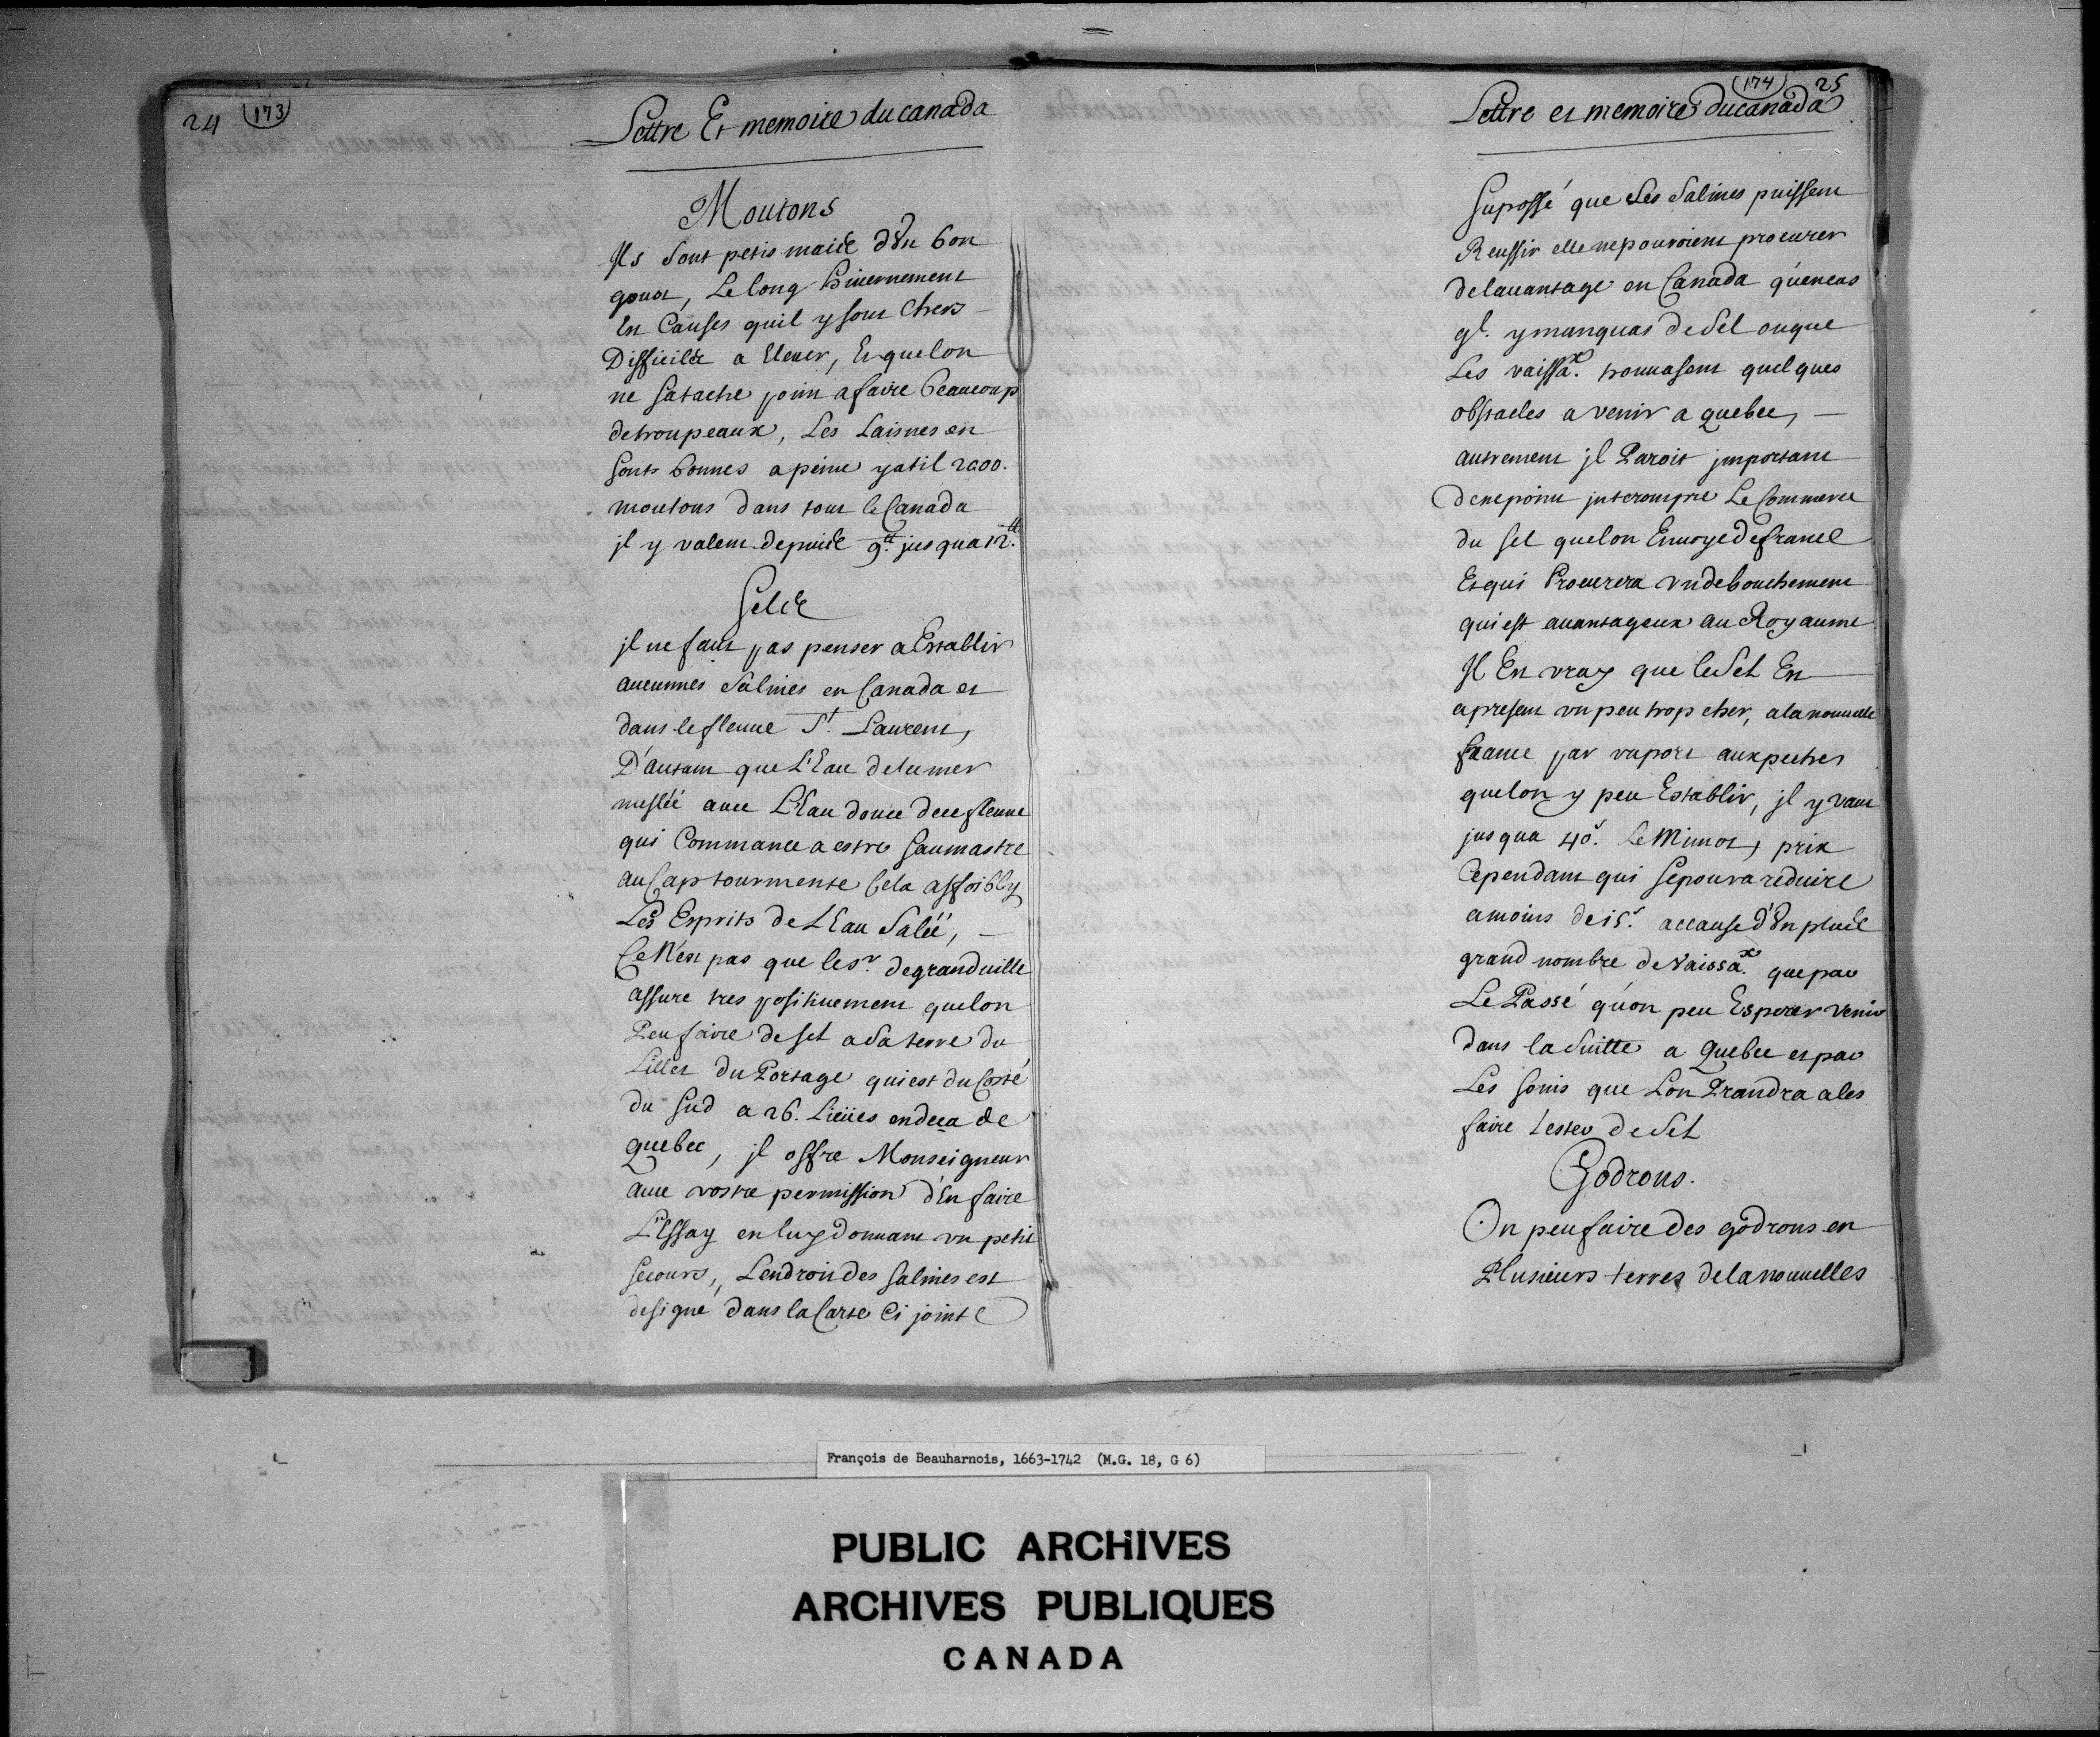 24 (173)
Lettre Et memoire du canada
Moutons
Ils sont petis mais d'un bon
goust, Le long hiuernement
Est Causes quil y sont Chers
Difficiles a Eleuer, Et quelon
ne satache point a faire beaucoup
detroupeaux, Les Laisnes en
sont bonnes a peine yatil 2000.
moutons dans tout le Canada
jl y valent depuis 9.tt jusqua 12.tt
Sels
jl ne faut pas penser a Establir
aucunnes Salines en Canada et
dans le fleuue St. Laurent,
D'autant que L'Eau delamer
meslée auec L'Eau douce dece fleuue
qui Commance a estre saumastre
au Cap tourmente Cela affoibly
Les Esprits de L'Eau Salée,
Ce N'est pas que le sr. degranduille
assure tres positiuement quelon
Peu faire de sel a Sa terre du
Lillet du Portage qui est du Costé
du Sud a 26. Lieües endeça de
quebec, jl offre Monseigneur
auec vostre permission d'En faire
L'Essay en luy donnant vn petit
secours, L'endroit des Salines est
designé dans la Carte Ci jointe
(174) 25
Lettre et memoire du canada
Suposse que Les Salines puissent
Reussir elle ne pouroient procurer
delauantage en Canada qu'encas
ql. y manquas de Sel ouque
Les vaissax. trouuasent quelques
obstacles a venir a quebec,
autrement jl Paroit jmportant
denepoint jnterompre Le Commerce
du sel quelon Enuoye de france
Et qui Procurera vn debouchement
qui est auantageux au Royaume
Il Est vray que le Sel Est
apresent vn peu trop cher, a la nouuelle
france par raport aux peches
quelon y peu Establir, jl y vaut
jusqua 40s. le Minot, prix
Cependant qui sepoura reduire
amoins de 15s. accause d'un plus
grand nombre de Vaissax. que par
Le Passé qu'on peu Esperer venir
dans la Suitte a Quebec et par
Les soins que Lon Prandra ales
faire lester de Sel
Godrons.
On peu faire des godrons en
Plusieurs terres delanouuelles
François de Beauharnois, 1663-1742 (M.G. 18, G 6)
PUBLIC ARCHIVES
ARCHIVES PUBLIQUES
CANADA